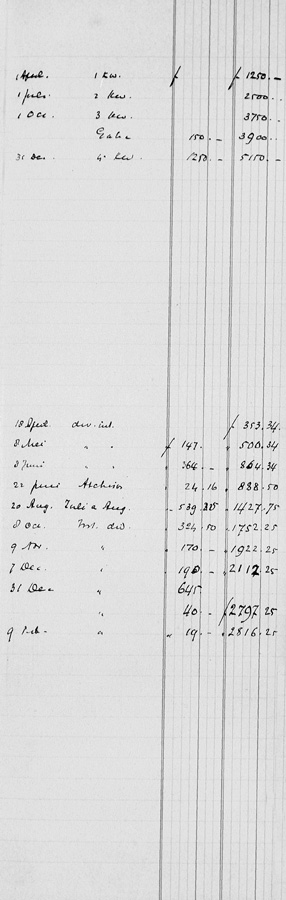 1 April. 1 Kw. ƒ ƒ 1250.-
1 Juli. 2 Kw. 2500.-
1 Oct. 3 Kw. 3750.-
150.- 3900.-
31 Dec. 4 Kw. 1250.- 5150.-
18 April div. int. ƒ 353.34
8 Mei " " ƒ 147. " 500.34
8 Juni " " " 364.- " 864.34
22 Juni Archies " 24.16 " 888.50
20 Aug. Juli a Aug. - 539.25 " 1427.75
8 Oct. Int. div. " 324.50 " 1752.25
9 Nov. " " 170.- " 1922.25
7 Dec. " " 190.- " 2112.25
31 Dec " " 645.
" " 40.- ƒ 2797.25
9 Feb. " " 19.- " 2816.25